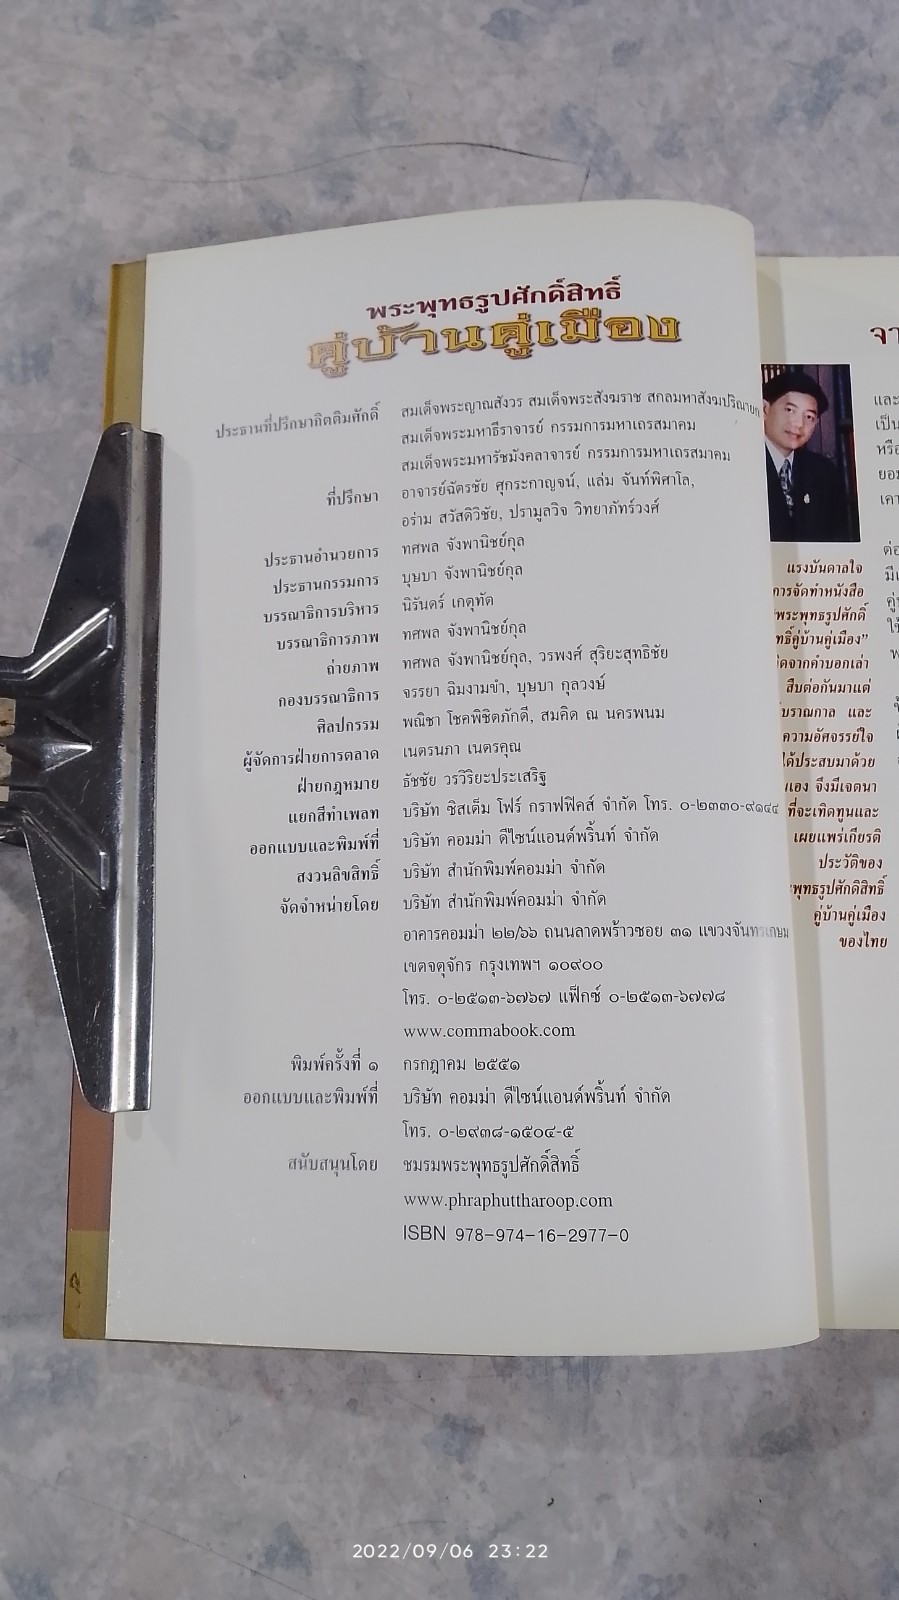 พระพุทธรูปศักดิ์สิทธิ์
คู่บ้านคู่เมือง
ประธานที่ปรึกษากิตติมศักดิ์ สมเด็จพระญาณสังวร สมเด็จพระสังฆราช สกลมหาสังฆปริณายก
สมเด็จพระมหาธีราจารย์ กรรมการมหาเถรสมาคม
สมเด็จพระมหารัชมังคลาจารย์ กรรมการมหาเถรสมาคม
ที่ปรึกษา อาจารย์ฉัตรชัย ศุกระกาญจน์, แล่ม จันท์พิศาโล,
อร่าม สวัสดิวิชัย, ปรามูลวิจ วิทยาภัทร์วงศ์
ประธานอำนวยการ ทศพล จังพานิชย์กุล
ประธานกรรมการ บุษบา จังพานิชย์กุล
บรรณาธิการบริหาร นิรันดร์ เกตุทัต
บรรณาธิการภาพ ทศพล จังพานิชย์กุล
ถ่ายภาพ ทศพล จังพานิชย์กุล, วรพงศ์ สุริยะสุทธิชัย
กองบรรณาธิการ จรรยา ฉิมงามขำ, บุษบา กุลวงษ์
ศิลปกรรม พณิชา โชคพิชิตภักดี, สมคิด ณ นครพนม
ผู้จัดการฝ่ายการตลาด เนตรนภา เนตรคุณ
ฝ่ายกฎหมาย ธัชชัย วรวิริยะประเสริฐ
แยกสีทำเพลท บริษัท ซิสเต็ม โฟร์ กราฟฟิคส์ จำกัด โทร. ๐-๒๓๓๐-๙๑๔๔
ออกแบบและพิมพ์ที่ บริษัท คอมม่า ดีไซน์แอนด์พริ้นท์ จำกัด
สงวนลิขสิทธิ์ บริษัท สำนักพิมพ์คอมม่า จำกัด
จัดจำหน่ายโดย บริษัท สำนักพิมพ์คอมม่า จำกัด
อาคารคอมม่า ๒๒/๖๖ ถนนลาดพร้าวซอย ๓๑ แขวงจันทรเกษม
เขตจตุจักร กรุงเทพฯ ๑๐๙๐๐
โทร. ๐-๒๕๑๓-๖๗๖๗ แฟ็กซ์ ๐-๒๕๑๓-๖๗๗๘
www.commabook.com
พิมพ์ครั้งที่ ๑ กรกฎาคม ๒๕๕๑
ออกแบบและพิมพ์ที่ บริษัท คอมม่า ดีไซน์แอนด์พริ้นท์ จำกัด
โทร. ๐-๒๙๓๘-๑๕๐๔-๕
สนับสนุนโดย ชมรมพระพุทธรูปศักดิ์สิทธิ์
www.phraphuttharoop.com
ISBN 978-974-16-2977-0
แรงบันดาลใจ
การจัดทำหนังสือ
พระพุทธรูปศักดิ์
คู่บ้านคู่เมือง"
จากคำบอกเล่า
สืบต่อกันมาแต่
โบราณกาล และ
ความอัศจรรย์ใจ
ได้ประสบมาด้วย
จึงมีเจตนา
ที่จะเทิดทูนและ
เผยแพร่เกียรติ
ประวัติของ
พุทธรูปศักดิ์สิทธิ์
คู่บ้านคู่เมือง
ของไทย
และ
เป็น
หรือ
2022/09/06 23:22